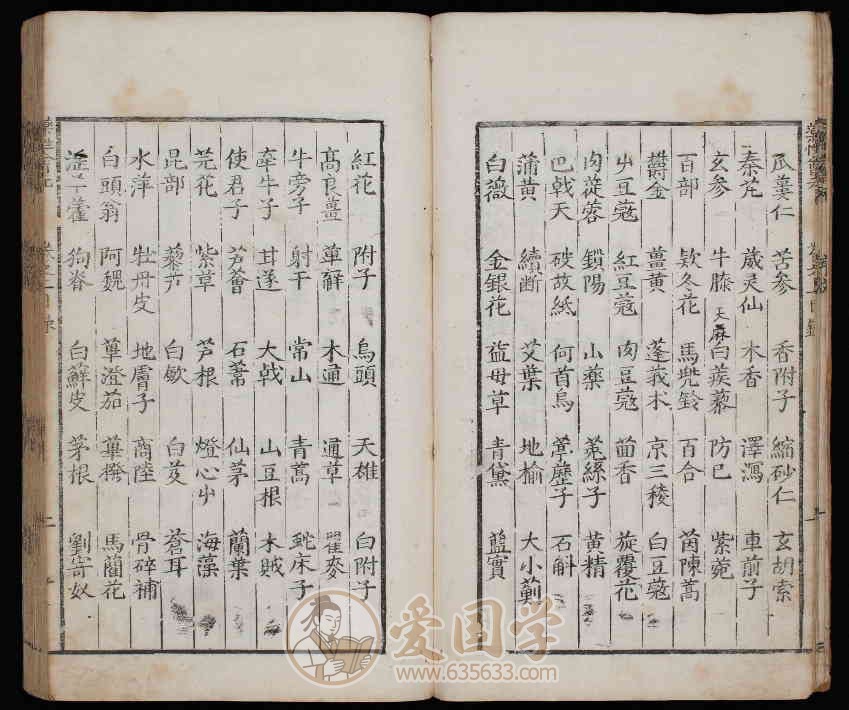 瓜蔞仁 苦参 香附子 縮砂仁 玄胡索
秦艽 葳灵仙 木香 澤瀉 車前子
玄参 牛膝 天麻 白蒺藜 防巳 紫菀
百部 欵冬花 馬兠鈴 百合 茵陳蒿
欝金 薑黄 蓬莪朮 京三稜 白豆蔻
草豆蔻 紅豆蔻 肉豆蔻 茴香 旋覆花
肉蓯蓉 鎖陽 小藥 菟絲子 黄精
巴戟天 破故紙 何首烏 葶藶子 石斛
蒲黄 續断 艾葉 地榆 大小薊
白薇 金銀花 益母草 青黛 藍實
紅花 附子 烏頭 天雄 白附子
髙良薑 萆薢 木通 通草 瞿麥
牛旁子 射干 常山 青蒿 虵床子
牽牛子 甘遂 大戟 山豆根 木賊
使君子 芦薈 石葦 仙茅 蘭葉
芫花 紫草 芦根 燈心草 海藻
昆部 藜芦 白歛 白芨 蒼耳
水萍 牡丹皮 地膚子 商陸 骨碎補
白頭翁 阿魏 蓽澄茄 蓽撥 馬藺花
淫羊藿 狗脊 白蘚皮 茅根 劉寄奴
爱国学
www.635633.com